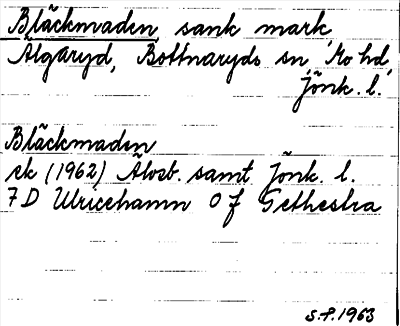 Bläckmaden, sank mark,
Älgaryd, Bottnaryds sn, Mo hd,
Jönk. l.
Bläckmaden
ek (1962) Älvsb. samt Jönk. l.
7 D Ulricehamn 0 f Gethestra
S.P. 1963